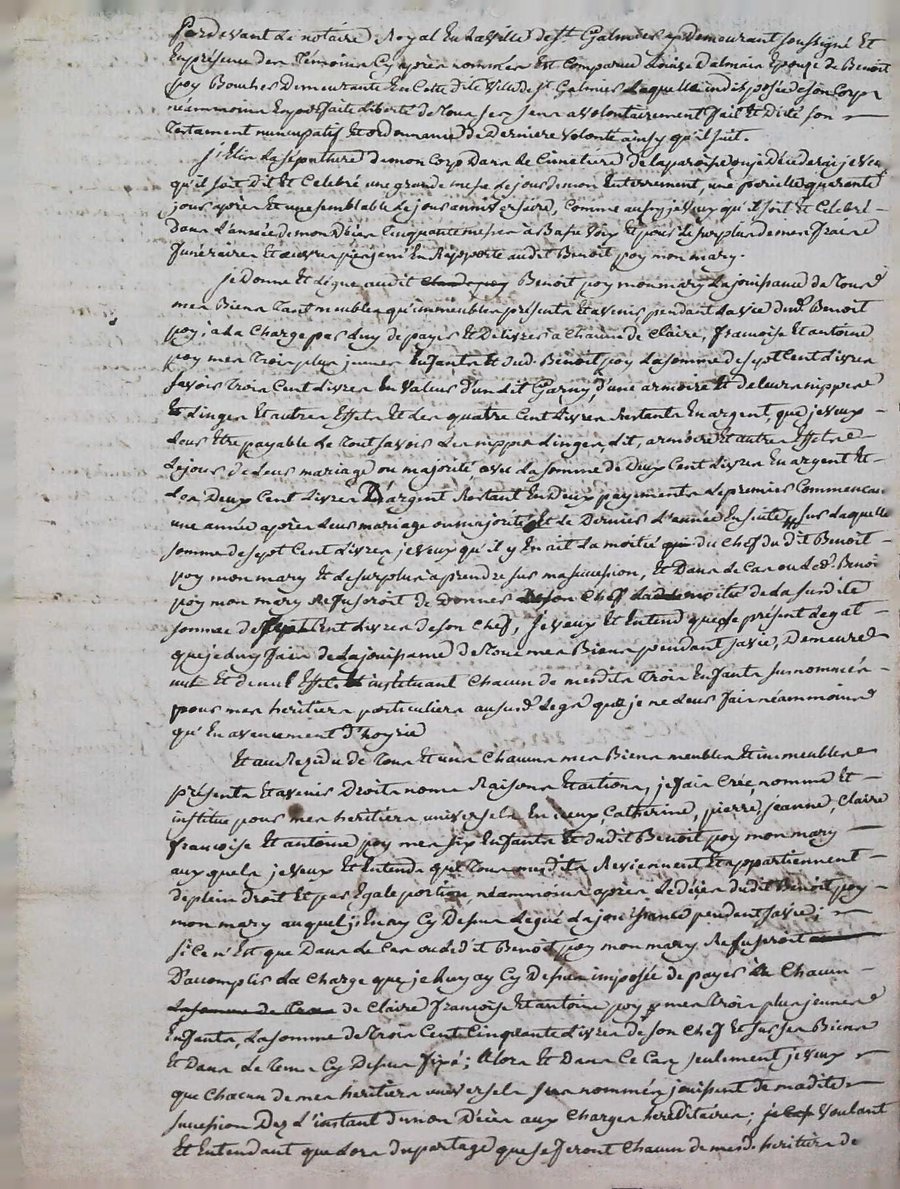 Pardevant Le notaire Royal En La Ville de St. Galmier y Demeurant soussigné Et
En présence des Témoins Cy après nommés Est Comparue Louise Dalmais Epouze de Benoît
poy Boucher Demeurante En Cette dite Ville de St. Galmier Laquelle indisposée de son Corps
néammoins En parfaite Liberté de Tous ses sens a volontairement fait Et Dicté son
Testament nuncupatif Et ordonnance de Derniere volonté ainsy qu'il suit.
j'Elis La sépulture de mon Corps Dans Le Cimetiére de La paroisse ou je Décéderai je veux
qu'il soit Dit Et Celebré une grande messe Le jour de mon Enterrement, une pareille quarante
jours après Et une semblable Le jour anniversaire, Comme aussy je veux qu'il soit Et Celebré
dans L'année de mon Décès Cinquante messes a Basse Voix Et pour Le surplus de mes fraix
funéraires Et œuvres pies je m'En Rapporte audit Benoît poy mon mary.
je Donne Et Légue audit Benoît poy mon mary La jouissance de Tous
mes Biens Tant meubles qu'immeubles présents Et avenir, pendant La vie dud. Benoît
poy, a La Charge par Luy de payer Et Délivrer a Chacun de Claire, francoise Et antoine
poy mes Trois plus jeunes Enfants Et dud. Benoît poy La somme de sept Cent Livres
savoir Trois Cent Livres En Valeur d'un Lit Garny, d'une armoire Et de Leurs nippes
Et Linges Et autres Effets Et Les quatre Cent Livres Restants En argent, que je veux
Leur Etre payable Le Tout savoir Les nippes Linges, Lit, armoire Et autres Effets
Le jour de Leur mariage ou majorité avec La somme de Deux Cent Livres En argent Et
Les Deux Cent Livres D'argent Restant En Deux payements Le premier Commencant
une année après Leur mariage ou majorité Et Le Dernier L'année En suite, sur Laquelle
somme de sept Cent Livres je veux qu'il y En ait La moitié du Chef dudit Benoît
poy mon mary Et Le surplus a prendre sur ma succession, Et Dans Le Cas ou Led. Benoît
poy mon mary Refuseroit de Donner de son Chef La moitié de La susdite
somme de sept Cent Livres de son Chef, je veux Et Entend que Le présent Legat
que je Luy fais de La jouissance de Tous mes Biens pendant sa vie, Demeure
nul Et de nul Effet. instituant Chacun de mesdits Trois Enfants surnommés
pour mes heritiers particuliers aususd. Legs que je ne Leur fais néammoins
qu'En avancement d'hoyrie
Et au Rezidu de Tous Et uns Chacuns mes Biens meubles Et immeubles
présents Et avenir Droits noms Raisons Et actions, je fais Crée, nomme Et
institue pour mes heritiers universels En iceux, Catherine, pierre, jeanne, Claire
francoise Et antoine poy mes six Enfants Et dudit Benoît poy mon mary
auxquels je veux Et Entends que Tous mesdits Reviennent Et appartiennent
de plein droit Et par Egale portion, néammoins après Le Décès dudit Benoît poy
mon mary auquel j'En ay Cy Dessus Legué La jouissance pendant sa vie;
si Ce n'Est que Dans Le Cas ou Ledit Benoît poy mon mary Refuseroit
D'accomplir La Charge que je Luy ay Cy Dessus imposée de payer a Chacun
de Claire francoise Et antoine poy mes Trois plus jeunes
Enfants, La somme de Trois Cent Cinquante Livres de son Chef Et sur ses Biens
Et Dans Le Tems Cy Dessus fixé; Alors Et Dans Ce Cas seulement je veux
que Chacun de mes heritiers universels sus nommés jouissent de madite
succession Dez L'instant de mon Décès aux Charges héréditaires; Voulant
Et Entendant que Lors du partage que se feront Chacun de mesd. heritiers de